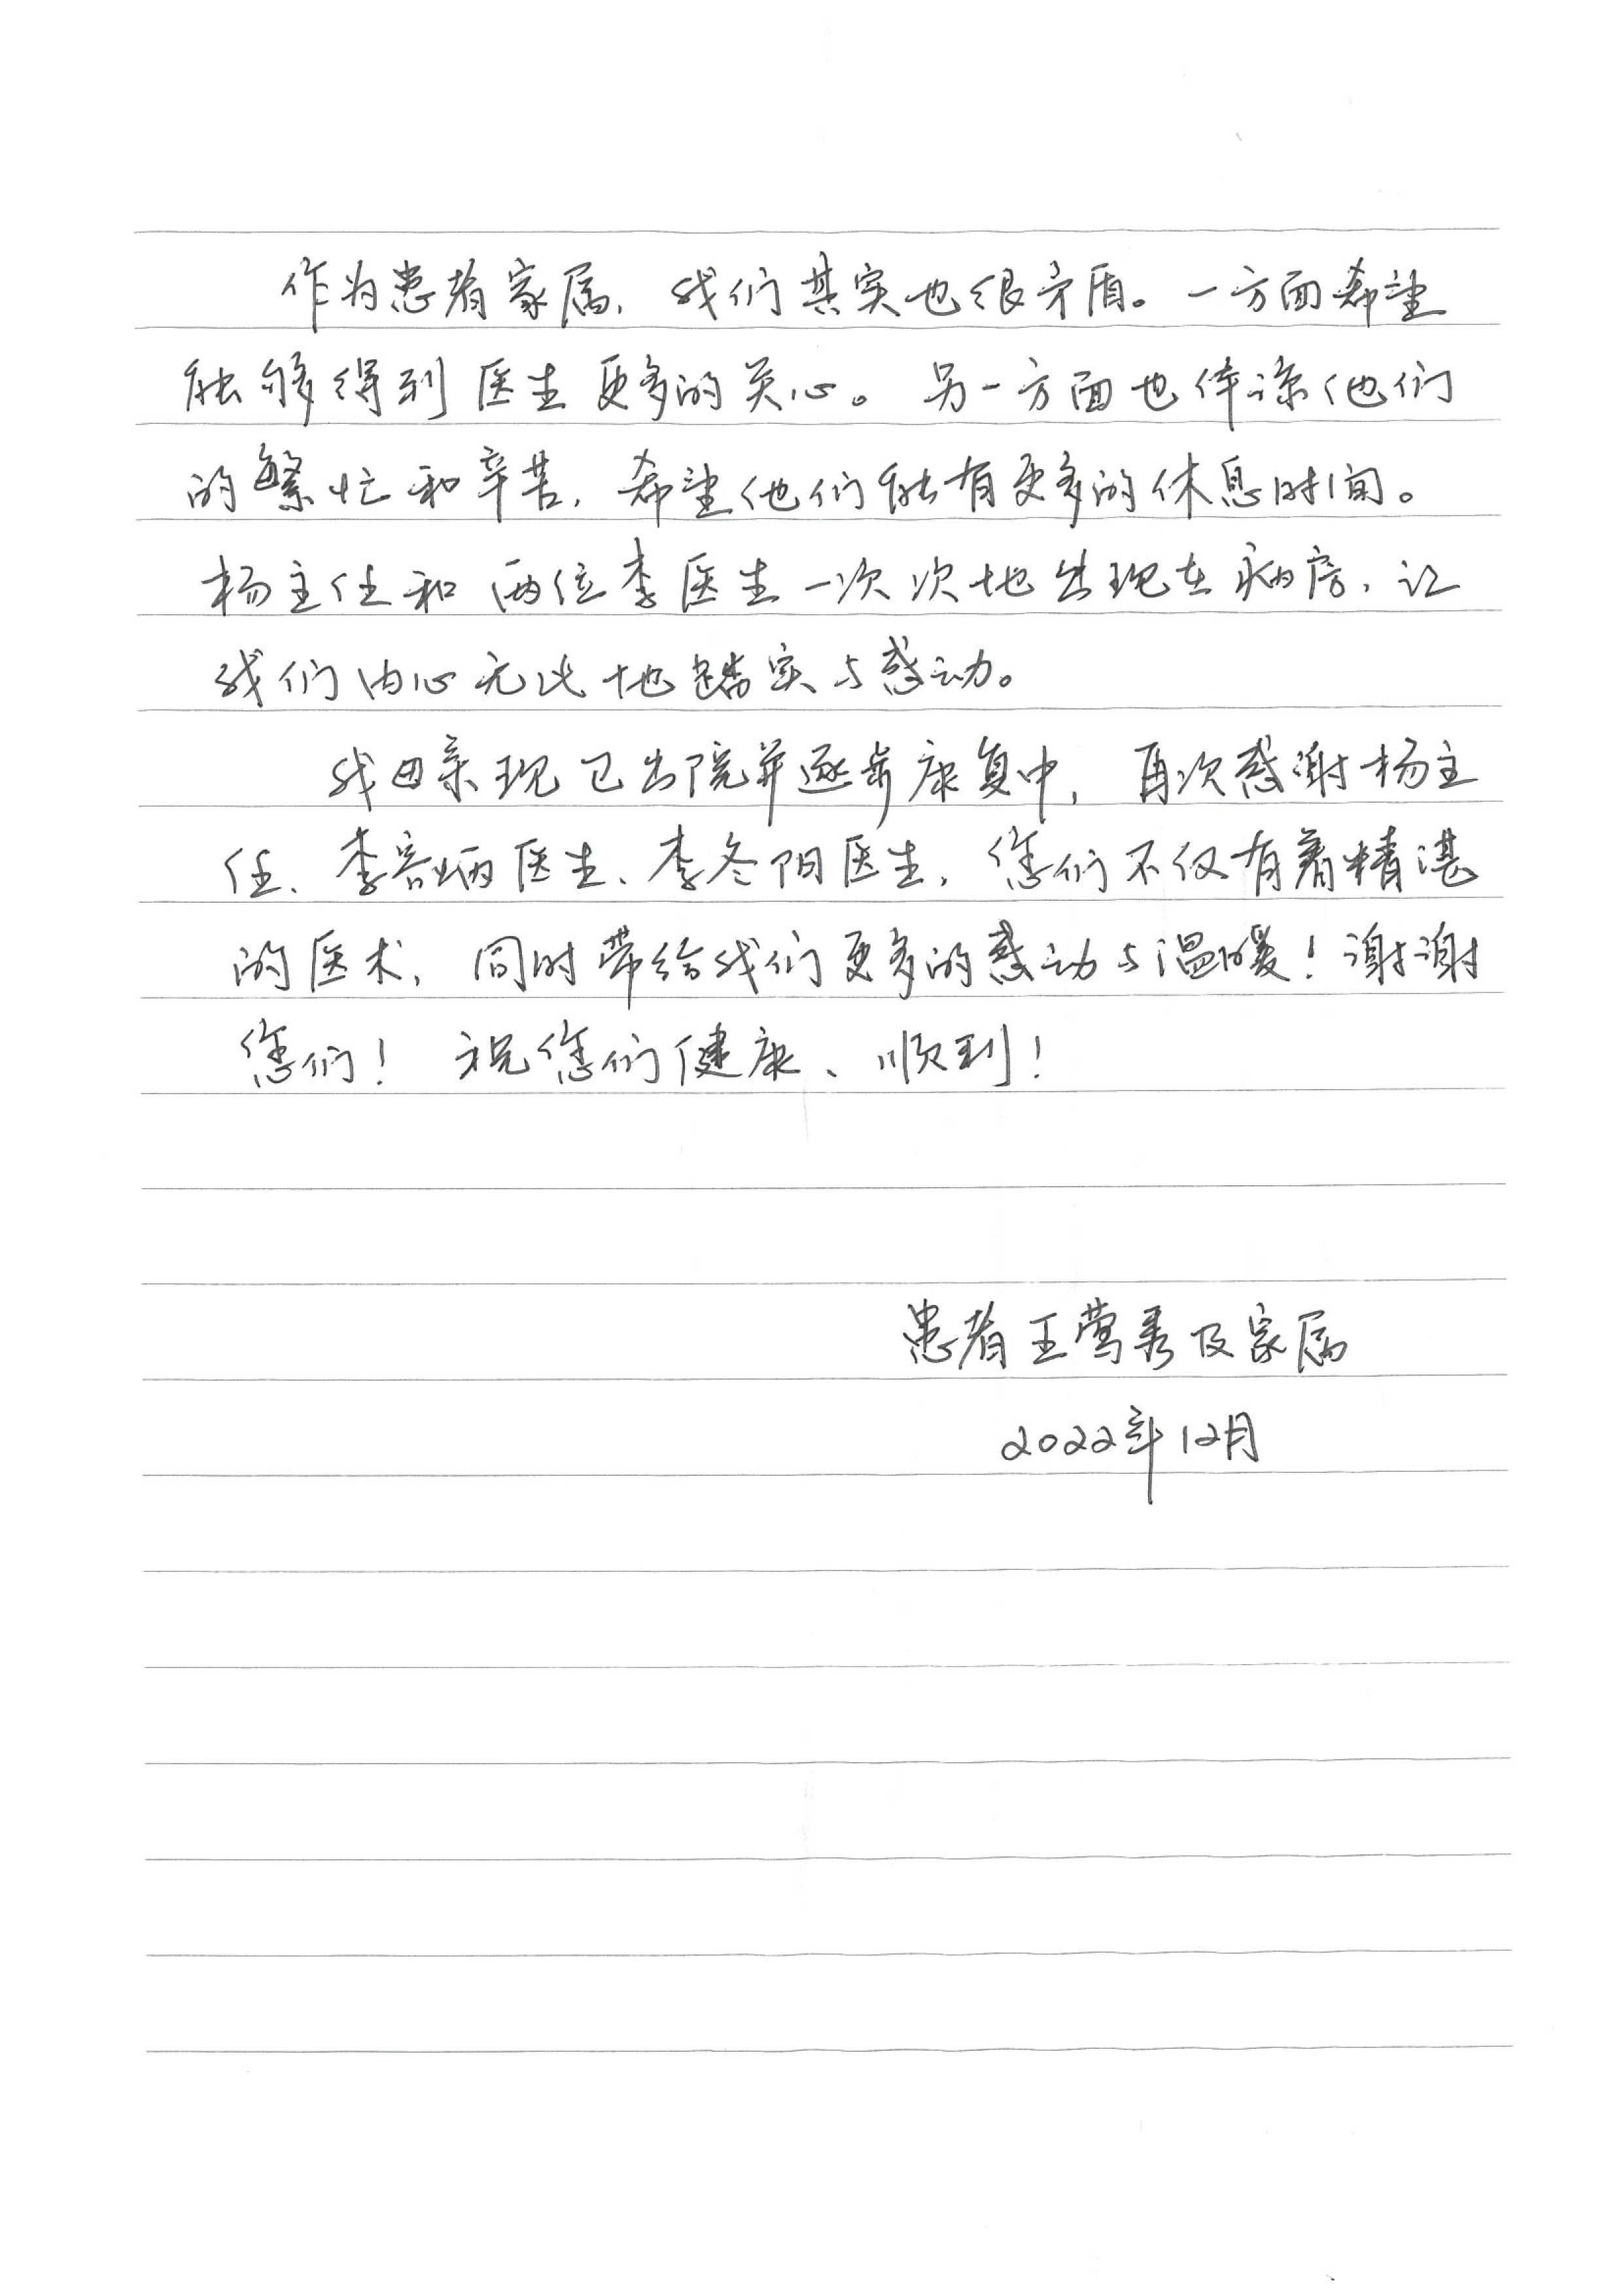 作为患者家属，我们其实也很矛盾。一方面希望
能够得到医生更多的关心。另一方面也体谅他们
的繁忙和辛苦，希望他们能有更多的休息时间。
杨主任和两位李医生一次次地出现在病房，让
我们内心无比地踏实与感动。
我母亲现已出院并逐步康复中，再次感谢杨主
任、李容炳医生、李冬阳医生，您们不仅有着精湛
的医术，同时带给我们更多的感动与温暖！谢谢
您们！祝您们健康、顺利！
患者王莺秀及家属
2022年12月